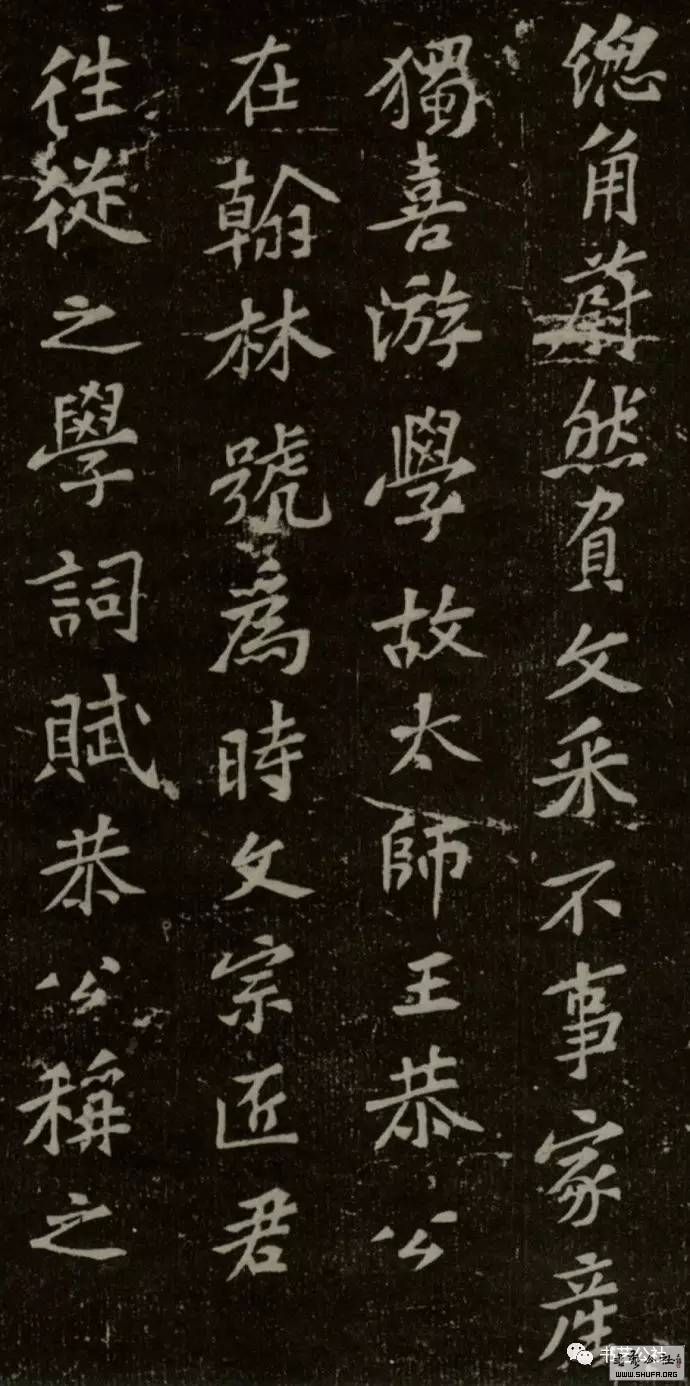 緫角蔚然負文采不事家產
獨喜游學故太師王恭公
在翰林號為時文宗匠君
往從之學詞賦恭公稱之
书艺公社
WWW.SHUFA.ORG